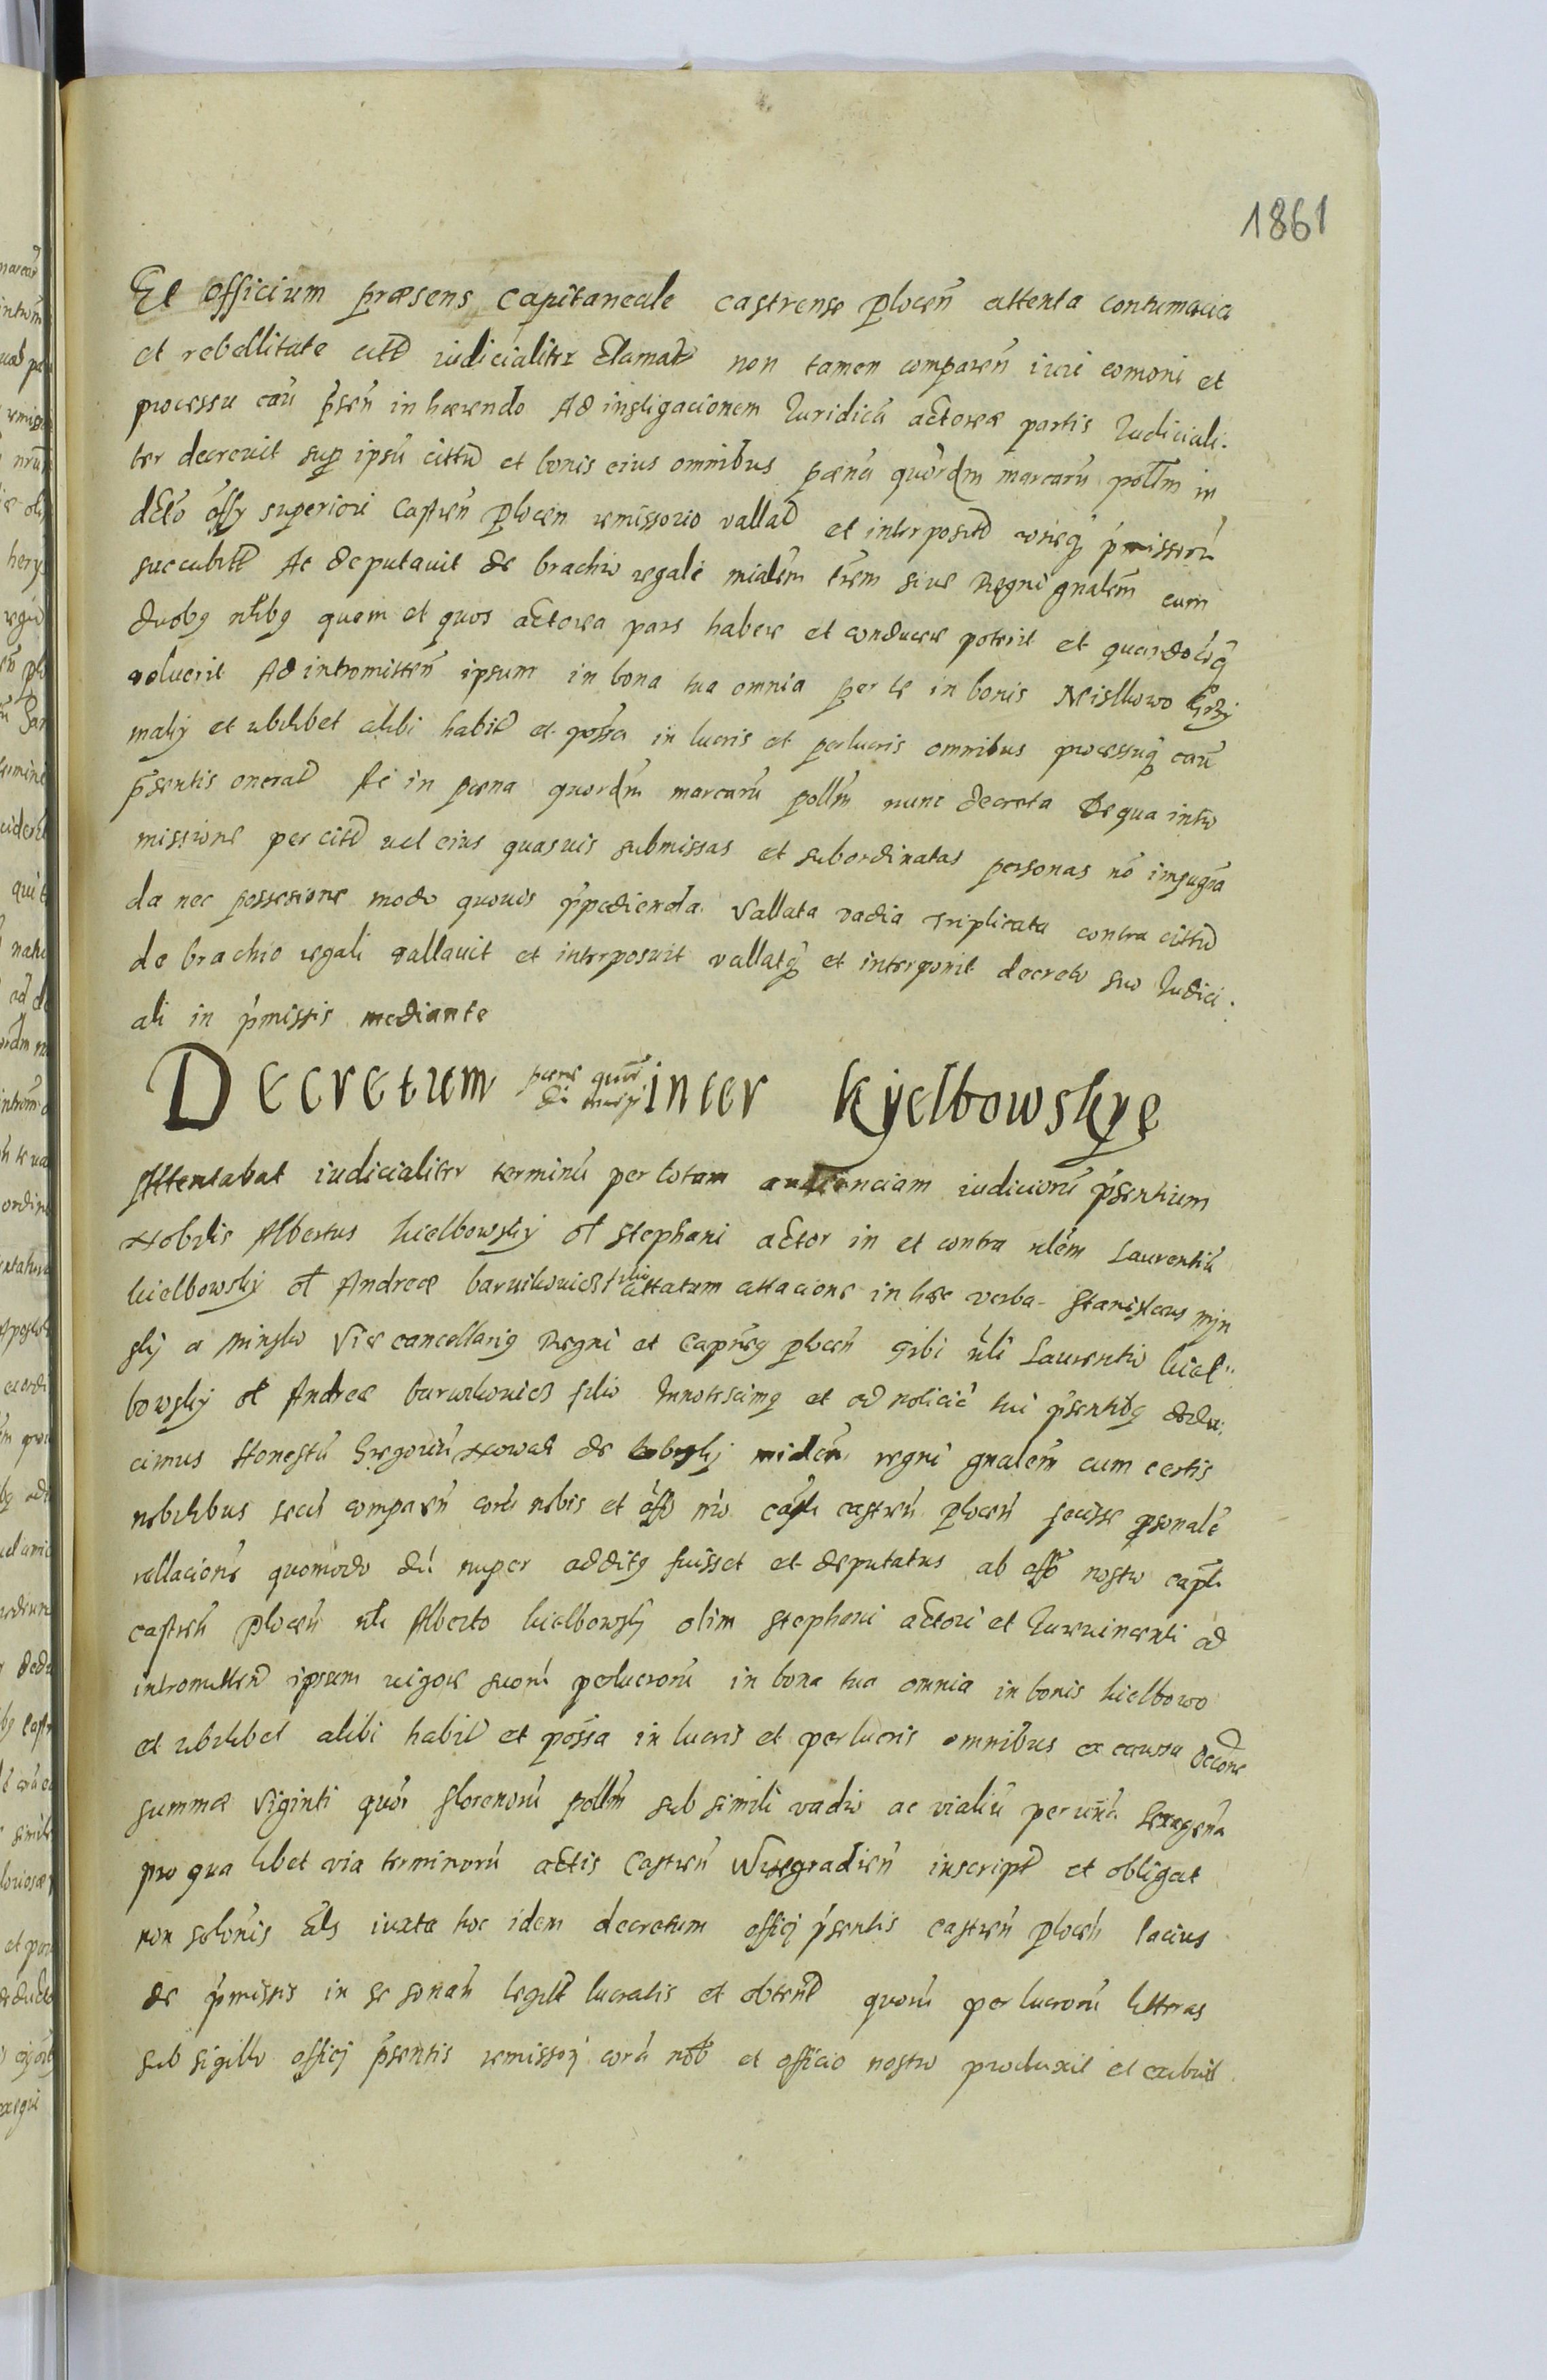 1861
Et Officium præsens Capitaneale castrense plocen̄ attenta contumacia
et rebellitate cittī iudicialiter clamatī non tamen comparen̄ iuri comoni et
processu caū p̄sen̄ in hærendo Ad instigacionem Iuridicā actoreæ partis Iudiciali-
ter decrevit sup ipsū cittū et bonis eius omnibus pænā quordm marcarū pollm in
dcto offy superiori Castren̄ plocen remissorio vallatī et interpositī p̄missorū
succubitī Ac deputavit de brachio regali mialem sive Regni gnalem̄ cum
duobq nlibq quem et quos actorea pars habere et conducere poterit et quandocūq
voluerit Ad intromitten̄ ipsum in bona tua omnia per te in bonis
maly et ubilibet alibi habitī et possa in lucris et perlucris omnibus processuq caū
p̄sentis onerat Ac in pæna quordm̄ marcarū pollm̄ nunc decreta De qua intro
missione per citū vel eius quasvis submissas et subordinatas personas nō impugnā
da nec possesione modo quovis p̄pedienda. Vallata vadia triplicata contra cittū
de brachio regali vallavit et interposuit vallatq et interponit decreto suo Iudici-
ali in p̄missis mediante
Decretum pænæ quor̄ inter Kyelbowskye
Attentabat iudicialiter terminū per totam audienciam iudiciorū p̄sentium
Nobilis Albertus kielbowsky ol Stephani actor in et contra nlem̄ Laurentiū
kielbowsky ol Andreæ barwikovicz filiū cittatum cittacione in hæc verba. Stanislaus myn
sky a Minsko Vice cancellarig Regni et Capnēg plocen̄ Tibi nl̄i Laurentio kiel-
bowsky ol Andreæ barwikovicz filio Innotescimq et ad noticiā tui p̄sentibq dedu-
cimus Honestū Gregoriū Nowak de mialem̄ regni gnalem̄ cum certis
nobilibus secū comparen̄ corā nobis et offo nro cap̄li castren̄ plocen̄ fecisse p̱sonalē
rellacione quomodo dū nuper additq fuisset et deputatus ab offo nostro cap̄li
castren̄ plocen̄ nl̄i Alberto kielbowsky olim Stephani actori et Iurevincenti ad
intromitten̄ ipsum vigore suorū perlucrorū in bona tua omnia in bonis kielbowo
et ubilibet alibi habitī et possa in lucris et perlucris omnibus ex caussa
summæ Viginti quor̄ florenorū pollm̄ sub simili vadio ac vialiū per unā sexagenā
pro qua libet via terminorū actis Castren̄ Wissegradien̄ inscriptī et obligat
non solonis Als iuxta hoc idem decretum officj p̄sentis castren̄ plocen̄ lacius
de p̄missis in se sonan̄ legitī lucratis et obtentī quorū perlucrorū litteras
sub sigillo officj p̄sentis remissorj corā nob et officio nostro produxit et exibuit